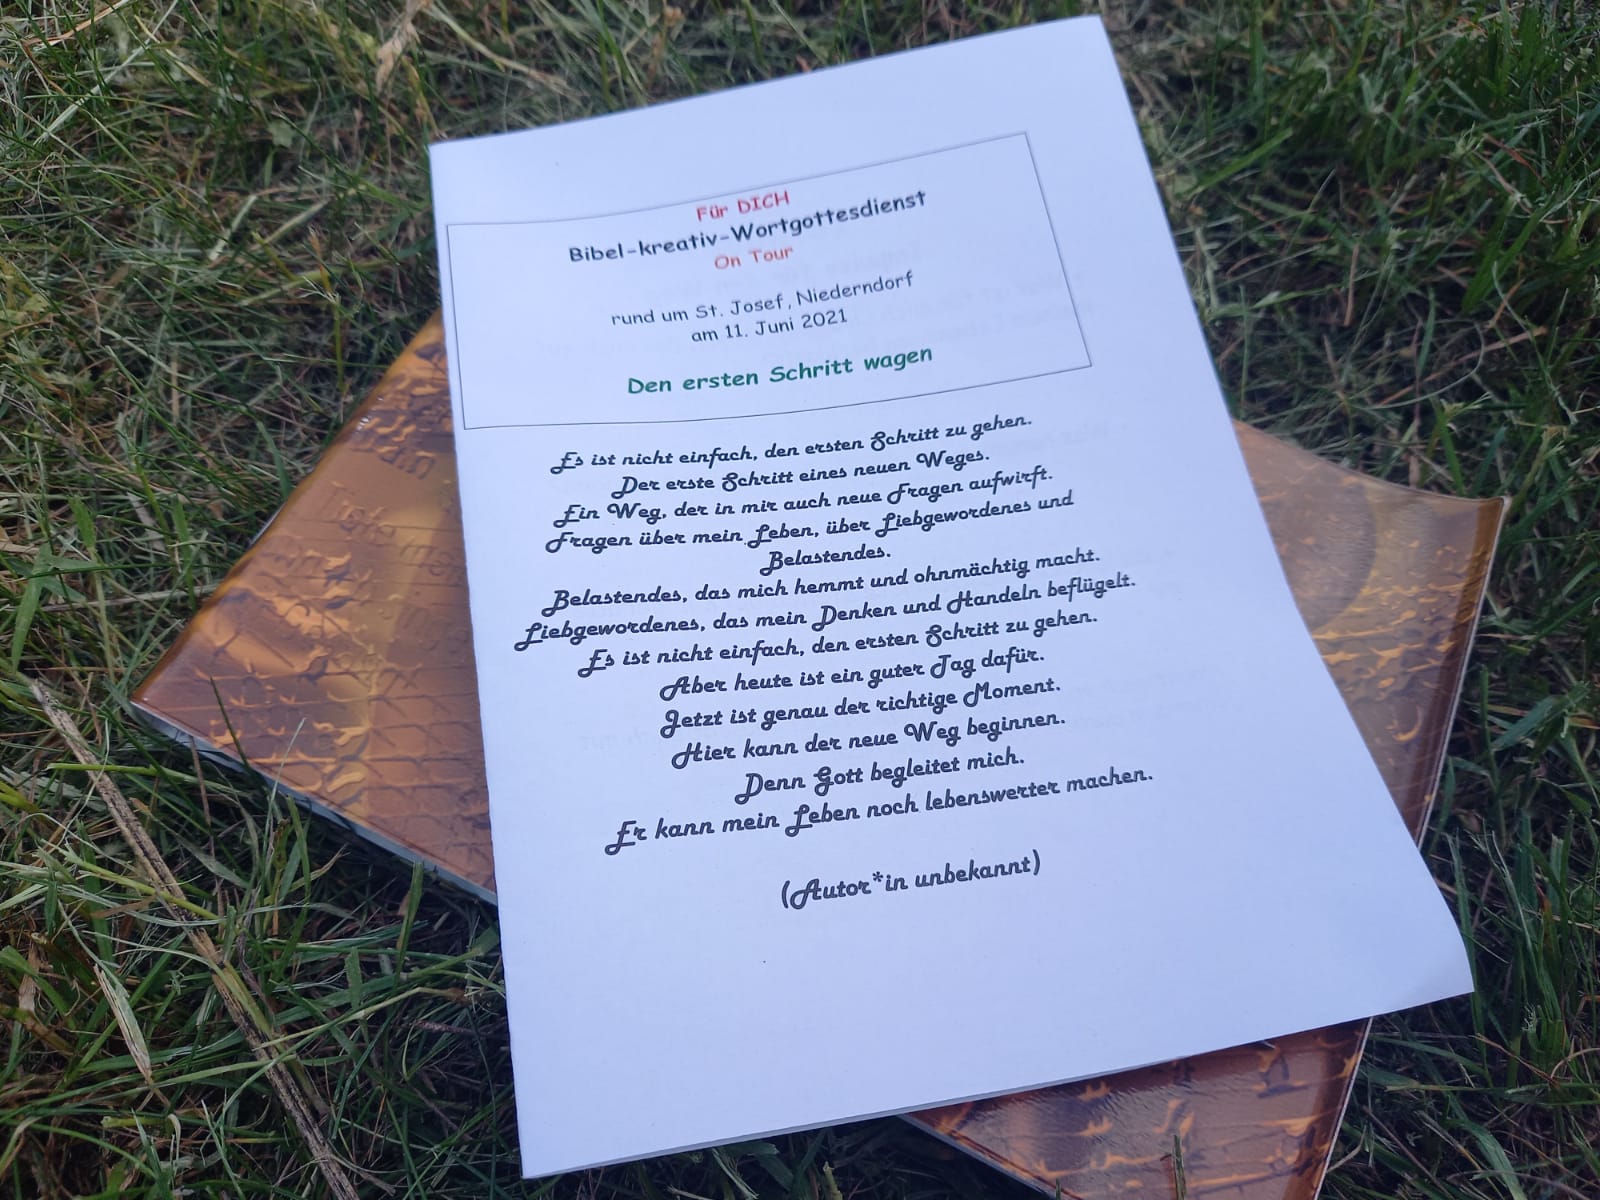 Für DICH
Bibel-kreativ-Wortgottesdienst
On Tour
rund um St. Josef, Niederndorf
am 11. Juni 2021
Den ersten Schritt wagen
Es ist nicht einfach, den ersten Schritt zu gehen.
Der erste Schritt eines neuen Weges.
Ein Weg, der in mir auch neue Fragen aufwirft.
Fragen über mein Leben, über Liebgewordenes und
Belastendes.
Belastendes, das mich hemmt und ohnmächtig macht.
Liebgewordenes, das mein Denken und Handeln beflügelt.
Es ist nicht einfach, den ersten Schritt zu gehen.
Aber heute ist ein guter Tag dafür.
Jetzt ist genau der richtige Moment.
Hier kann der neue Weg beginnen.
Denn Gott begleitet mich.
Er kann mein Leben noch lebenswerter machen.
(Autor*in unbekannt)